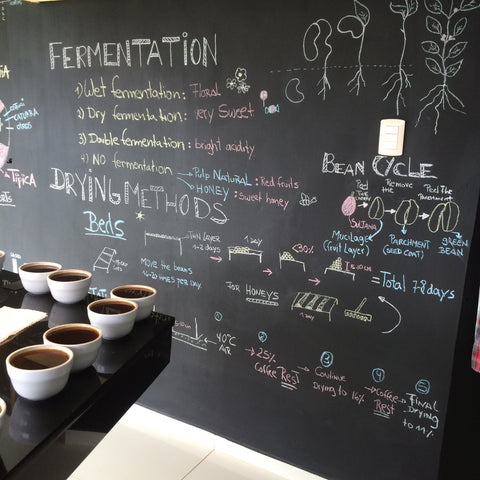 FERMENTATION
1) Wet fermentation: Floral
2) Dry fermentation: very sweet
3) Double fermentation: bright acidity
4) NO fermentation
Pulp NATURAL: Red fruits
HONEY: Sweet honey
CATURRA
TIPICA
DRYING METHODS
Beds
THIN LAYER
1-2 days
Move the beans
16-20 times per day
1 DAY
<30%
= Total 7-8 days
FOR HONEYS
1 DAY
BEAN CYCLE
Peel
The
Remove the
Peel the
Parchment
SULTANA
Mucilage
(fruit layer)
PARCHMENT
(SEED COAT)
GREEN
BEAN
40°C
AIR
2
25%
Coffee Rest
3
Continue
Drying to 16%
4
Coffee
Rest
5
FINAL
Drying
to 11%